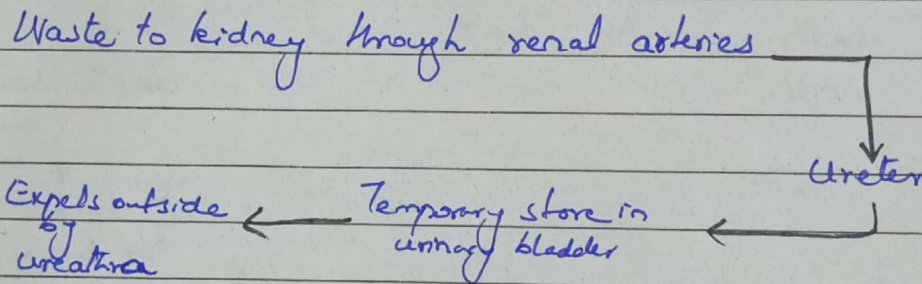 Waste to kidney through renal arteries
Ureter
Temporary store in
urinary bladder
Expels outside
by
ureathra